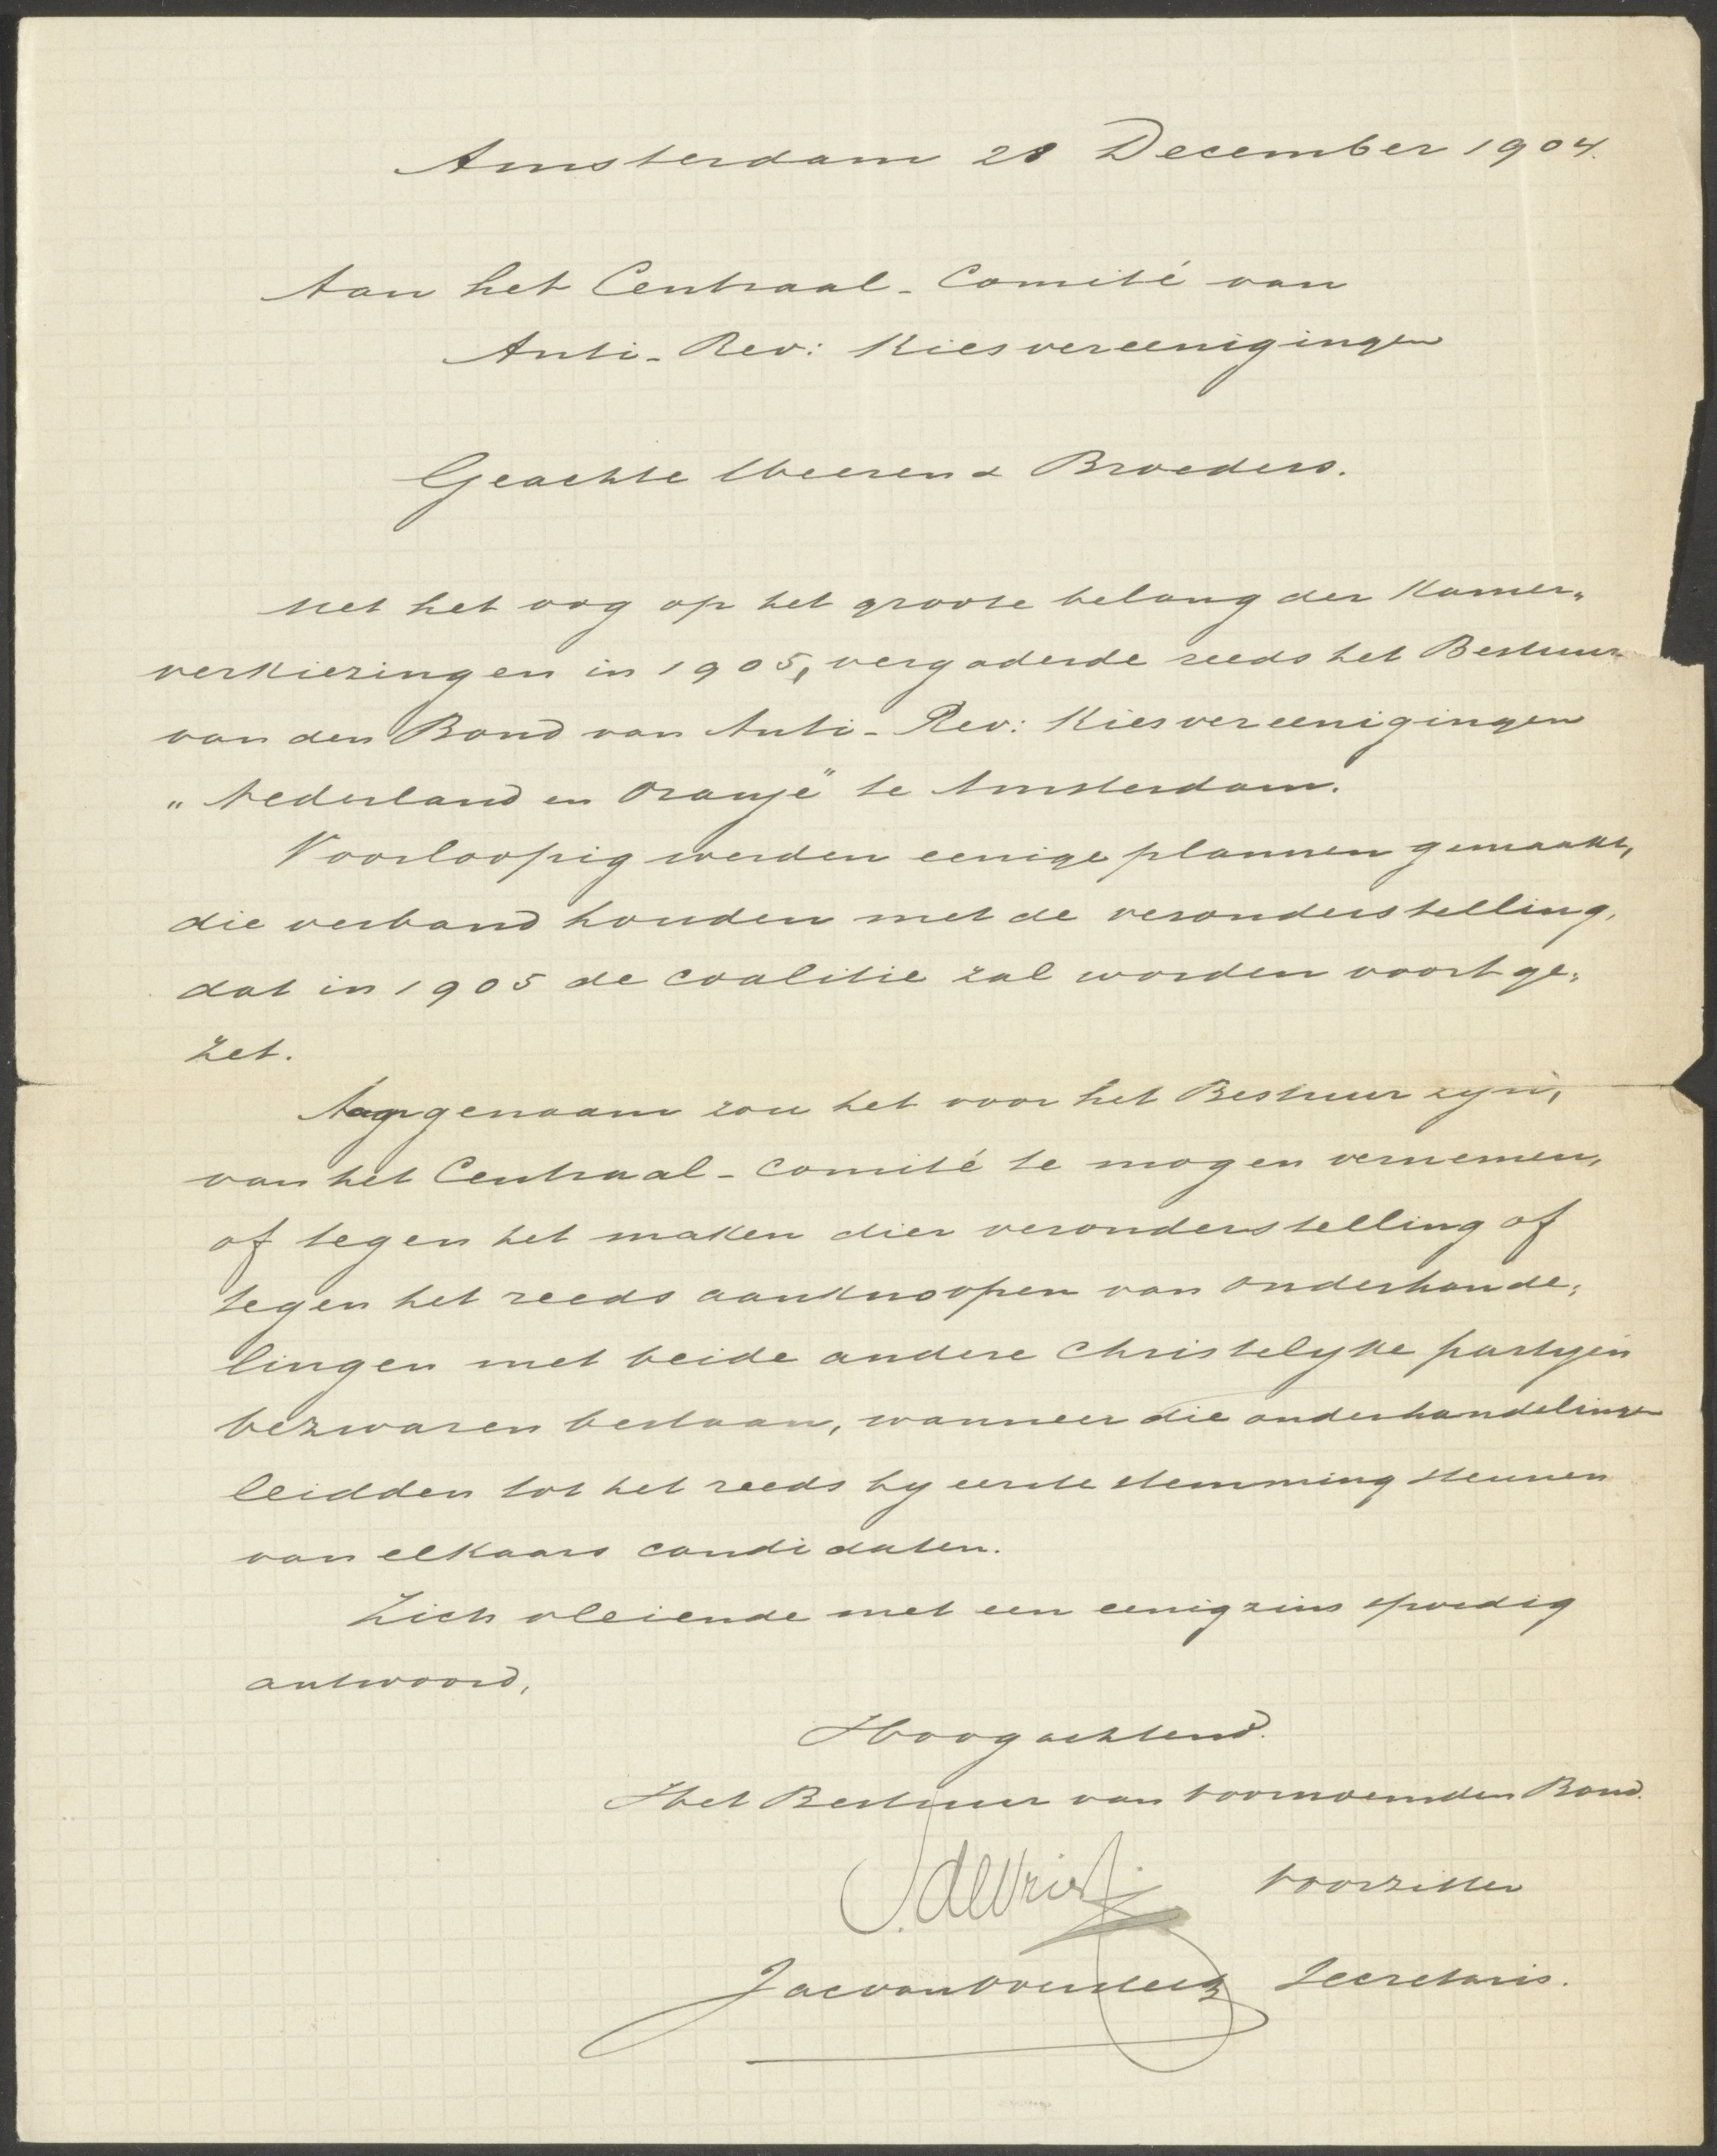 Amsterdam 28 December 1904.
Aan het Centraal-Comité van
Anti-Rev: Kiesvereenigingen
Geachte Heeren & Broeders.
Met het oog op het groote belang der Kamer„
verkiezingen in 1905, vergaderde reeds het Bestuur
van den Bond van Anti-Rev: Kiesvereenigingen
„Nederland en Oranje" te Amsterdam.
Voorloopig werden eenige plannen gemaakt,
die verband houden met de veronderstelling,
dat in 1905 de coalitie zal worden voortge„
zet.
Aangenaam zou het voor het Bestuur zijn,
van het Centraal-Comité te mogen vernemen,
of tegen het maken dier veronderstelling of
tegen het reeds aanknoopen van onderhande„
lingen met beide andere Christelijke partijen
bezwaren bestaan, wanneer die onderhandelingen
leidden tot het reeds bij eerste stemming steunen
van elkaars candidaten.
Zich vleiende met een eenigzins spoedig
antwoord,
Hoogachtend.
Het Bestuur van voornoemden Bond.
S. de Vries Voorzitter
Jac van Secretaris.